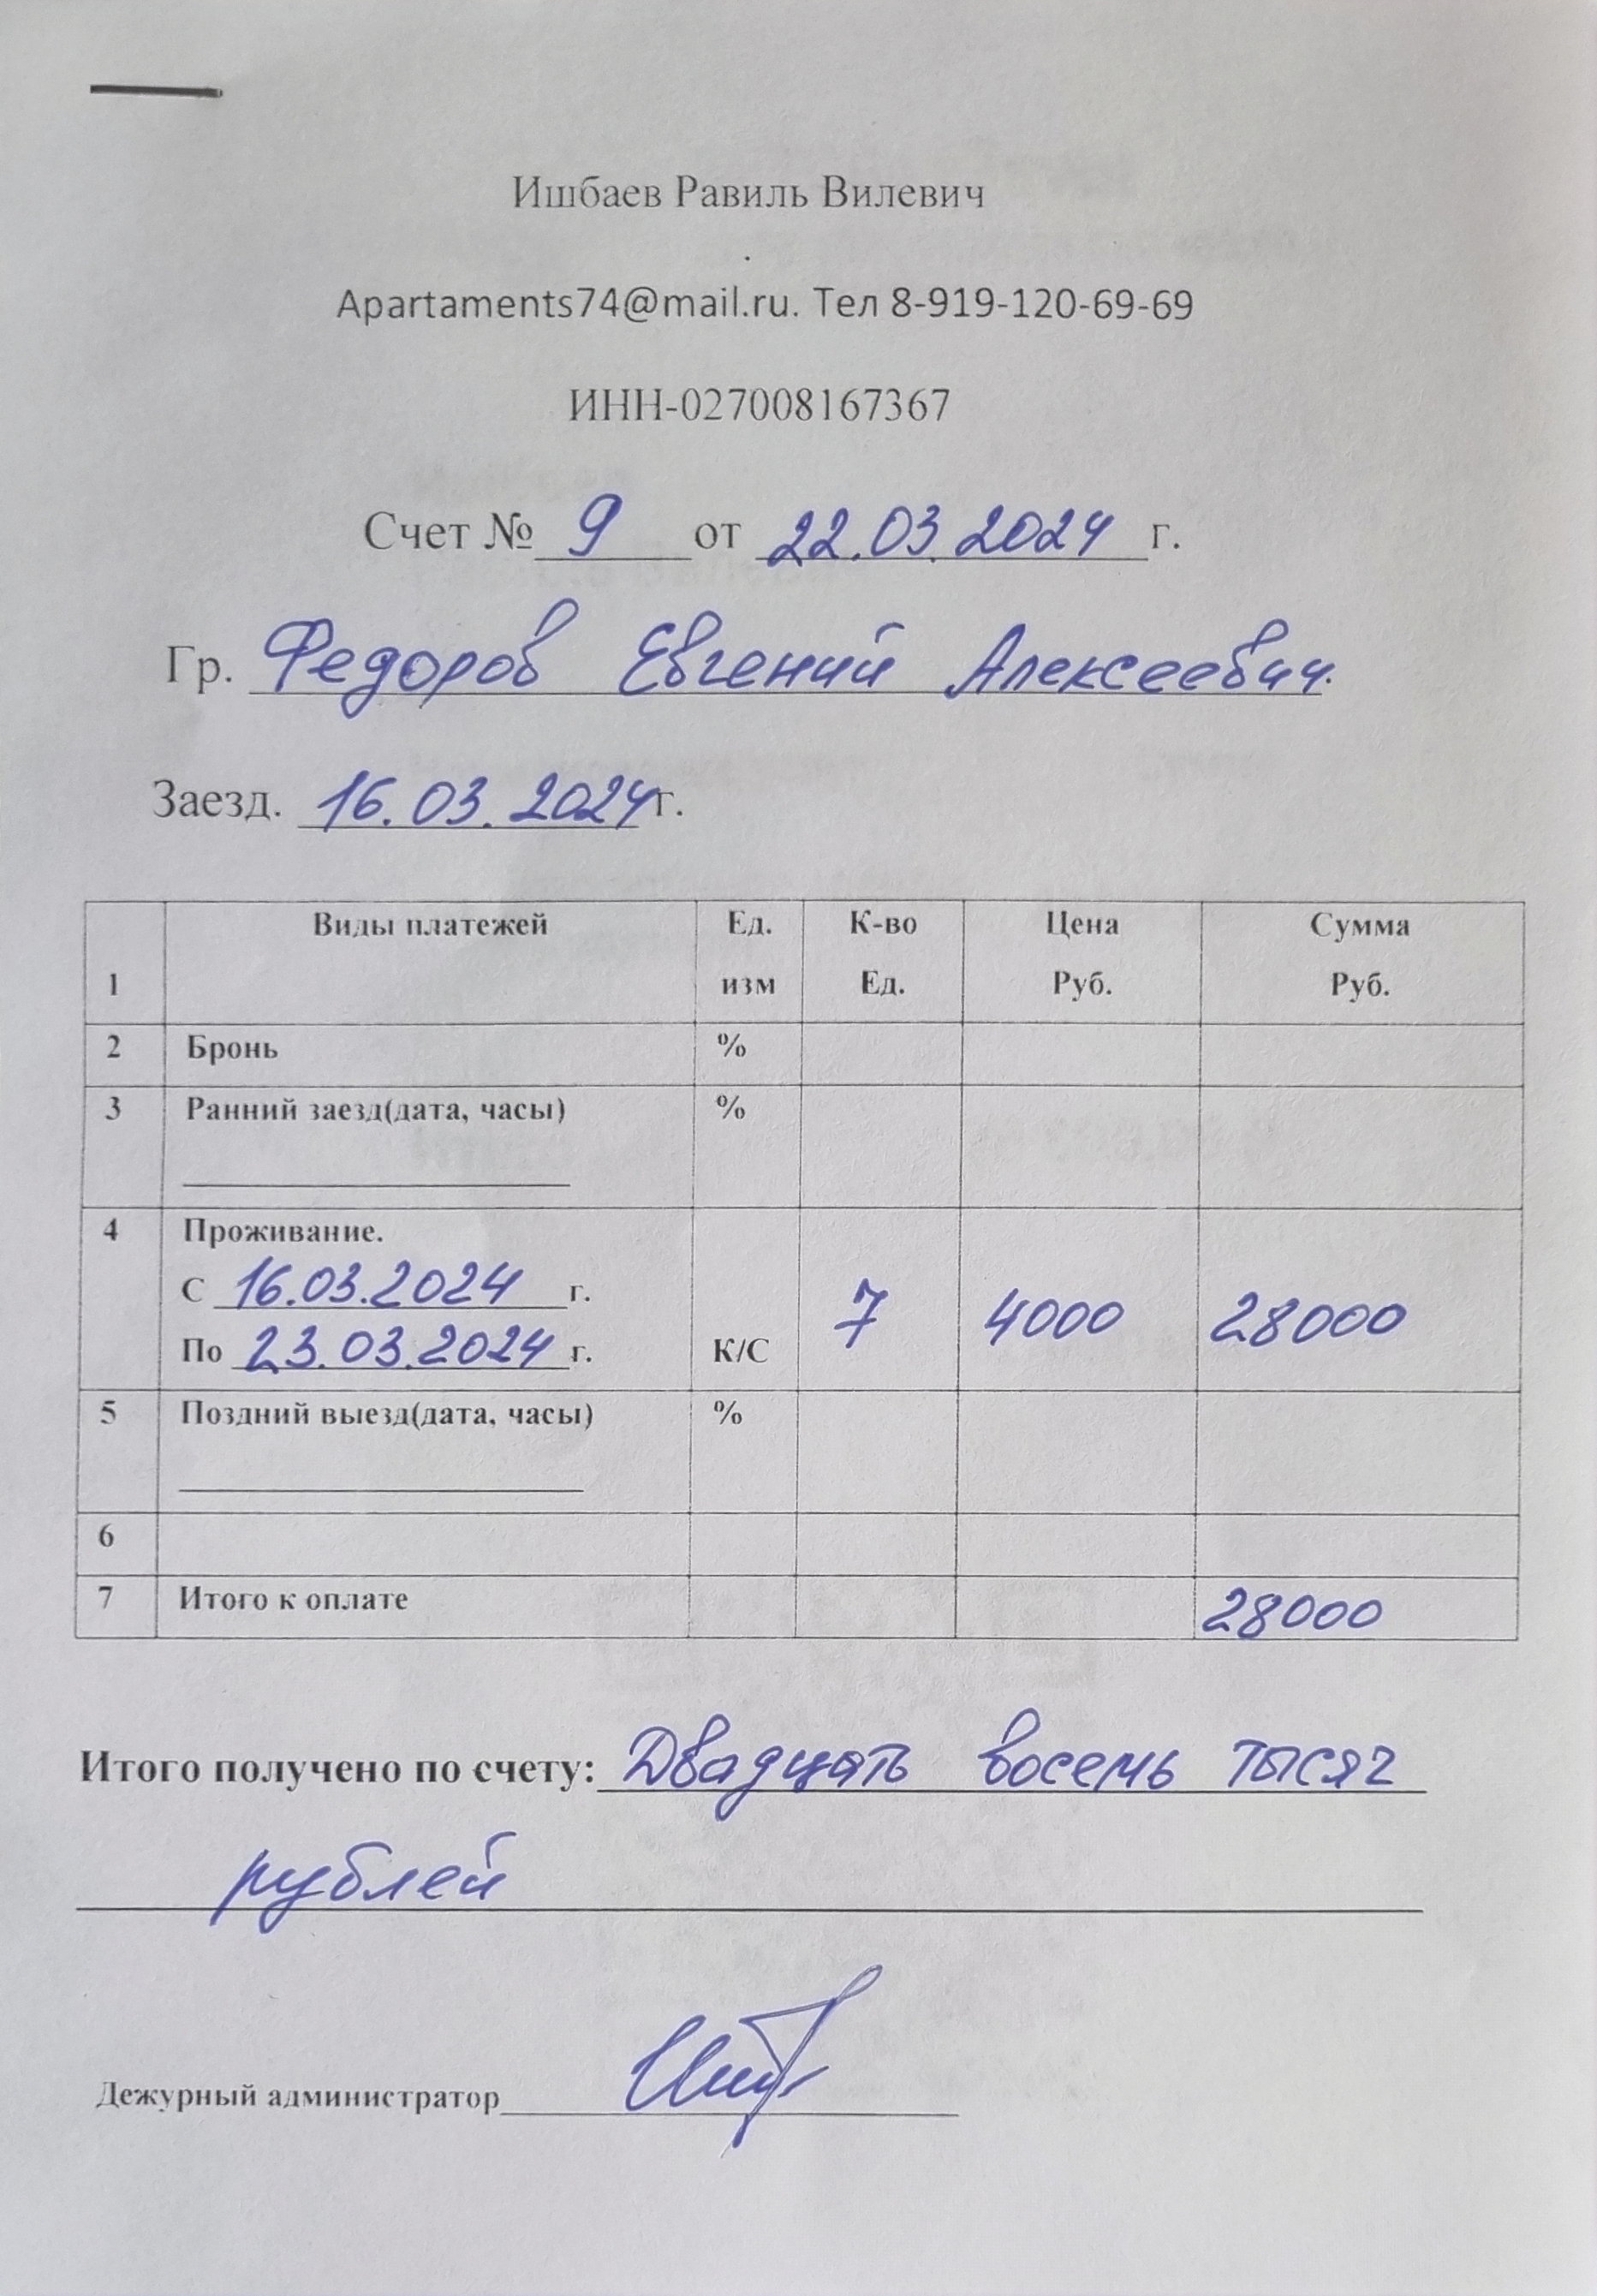 Ишбаев Равиль Вилевич
Apartaments74@mail.ru. Тел 8-919-120-69-69
ИНН-027008167367
Счет № 9 от 22.03.2024 г.
Гр. Федоров Евгений Алексеевич.
Заезд. 16.03.2024 г.
1 Виды платежей Ед. изм К-во Ед. Цена Руб. Сумма Руб.
2 Бронь %
3 Ранний заезд(дата, часы) %
4 Проживание.
С 16.03.2024 г.
По 23.03.2024 г. К/С 7 4000 28000
5 Поздний выезд(дата, часы) %
6
7 Итого к оплате 28000
Итого получено по счету: Двадцать восемь тысяч
рублей
Дежурный администратор